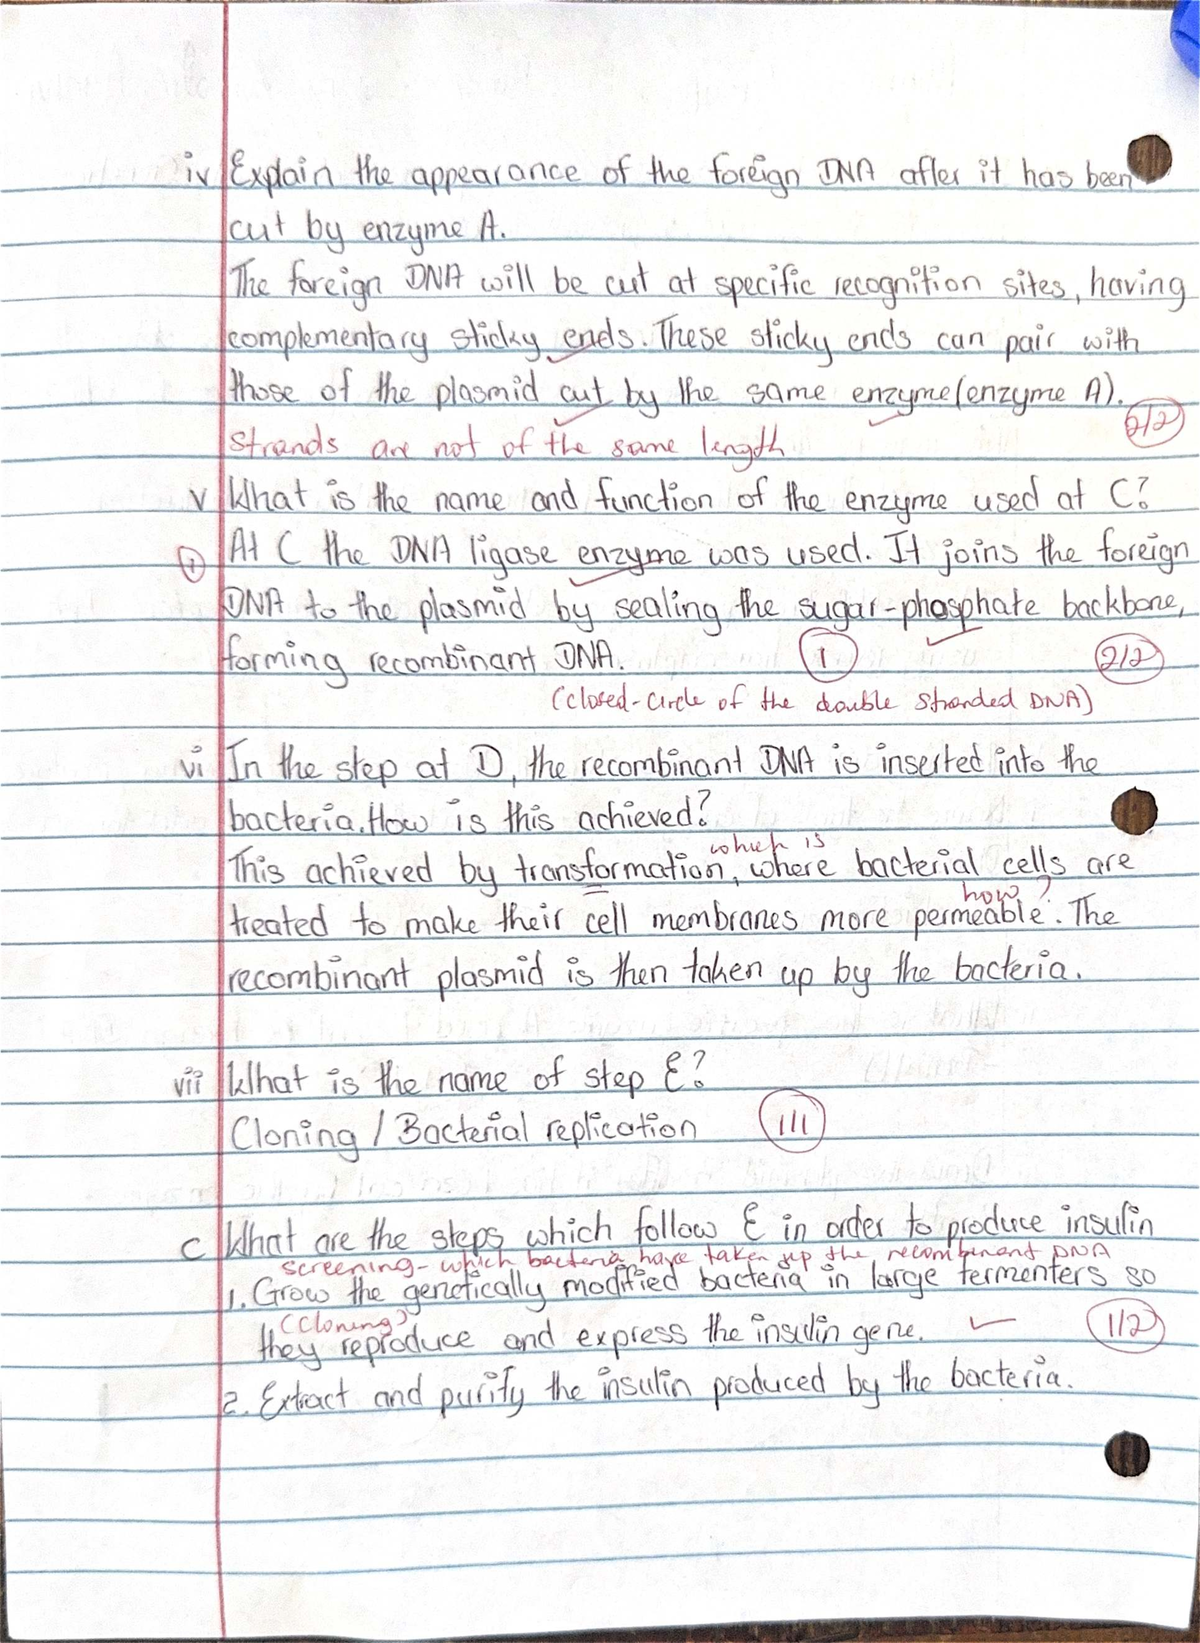 iv Explain the appearance of the foreign DNA after it has been
cut by enzyme A.
The foreign DNA will be cut at specific recognition sites, having
complementary sticky ends. These sticky ends can pair with
those of the plasmid cut by the same enzyme (enzyme A).
2/2
strands are not of the same length
v What is the name and function of the enzyme used at C?
At C the DNA ligase enzyme was used. It joins the foreign
1
DNA to the plasmid by sealing the sugar-phosphate backbone,
forming recombinant DNA. 1 2/2
(closed-circle of the double stranded DNA)
vi In the step at D, the recombinant DNA is inserted into the
bacteria. How is this achieved?
which is
This achieved by transformation, where bacterial cells are
how?
treated to make their cell membranes more permeable. The
recombinant plasmid is then taken up by the bacteria.
vii What is the name of step E?
Cloning / Bacterial replication 1/1
c What are the steps which follow E in order to produce insulin
screening - which bacteria have taken up the recombinant DNA
1. Grow the genetically modified bacteria in large fermenters so
(cloning)
they reproduce and express the insulin gene. 1/2
2. Extract and purify the insulin produced by the bacteria.